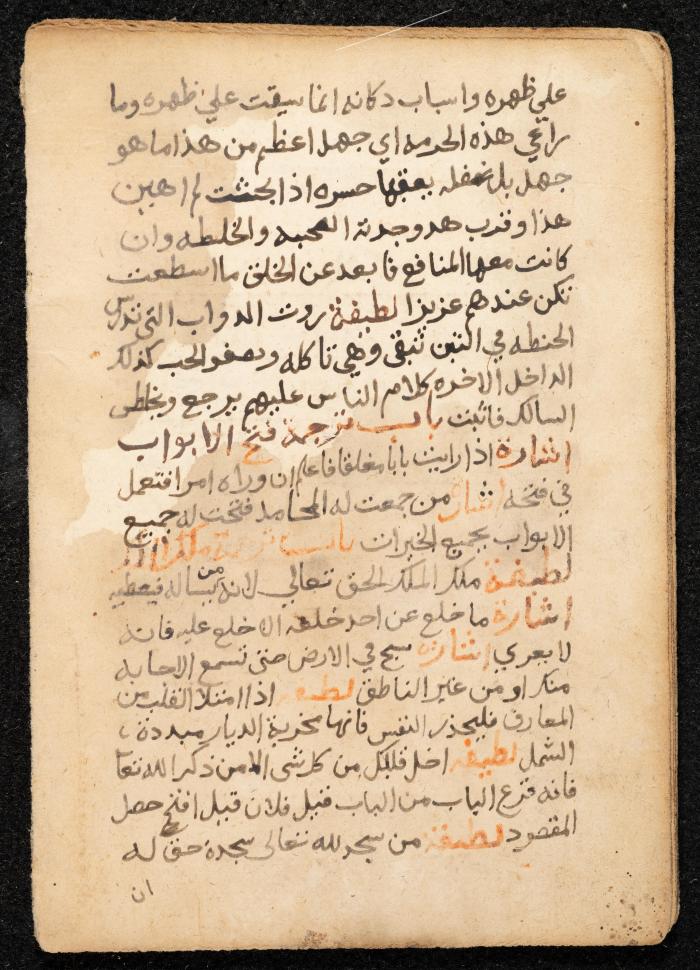 علي ظهره واسباب دكانه انما سيقت علي ظهره وما
راعي هذه الحرمه اي جهل اعظم من هذا ما هو
جهل بل غفله يعقبها حسره اذا بحثت لم اهين
هذا وقرب هد وجدته الصحبه والخلطه وان
كانت معها المنافع فابعد عن الخلق ما اسطعت
تكن عندهم عزيزا لطيفة روث الدواب التي تدرس
الحنطه في التبن تنقي وهي تاكله ويصفو الحب كذلك
الداخل الاخره كلام الناس عليهم يرجع ويخطي
السالك فاثبت باب ترجمة فتح الابواب
اشارة اذا رايت بابا مغلقا فاعلم ان وراه امرا فتعمل
في فتحه اشارة من جمعت له المحامد فتحت له جميع
الابواب بجميع الخيرات باب ترجمة
لطيفة ملك الملك الحق تعالي لانه من يساله فيعطيه
اشارة ما خلع عن احد خلعه الا خلع عليه فانه
لا يعري اشارة سبح في الارض حتى تسمع الاجابه
منك او من غير الناطق لطيفه اذا امتلا القلب من
المعارف فليحذر النفس فانها مخربة الديار مبددة
الشمل لطيفه اخل قلبك من كل شي الا من ذكر الله تعا
فانه قرع الباب من الباب قيل فلان قيل افتح حصل
المقصود لطيفة من سجد لله تعالى سجدة حق له
ان